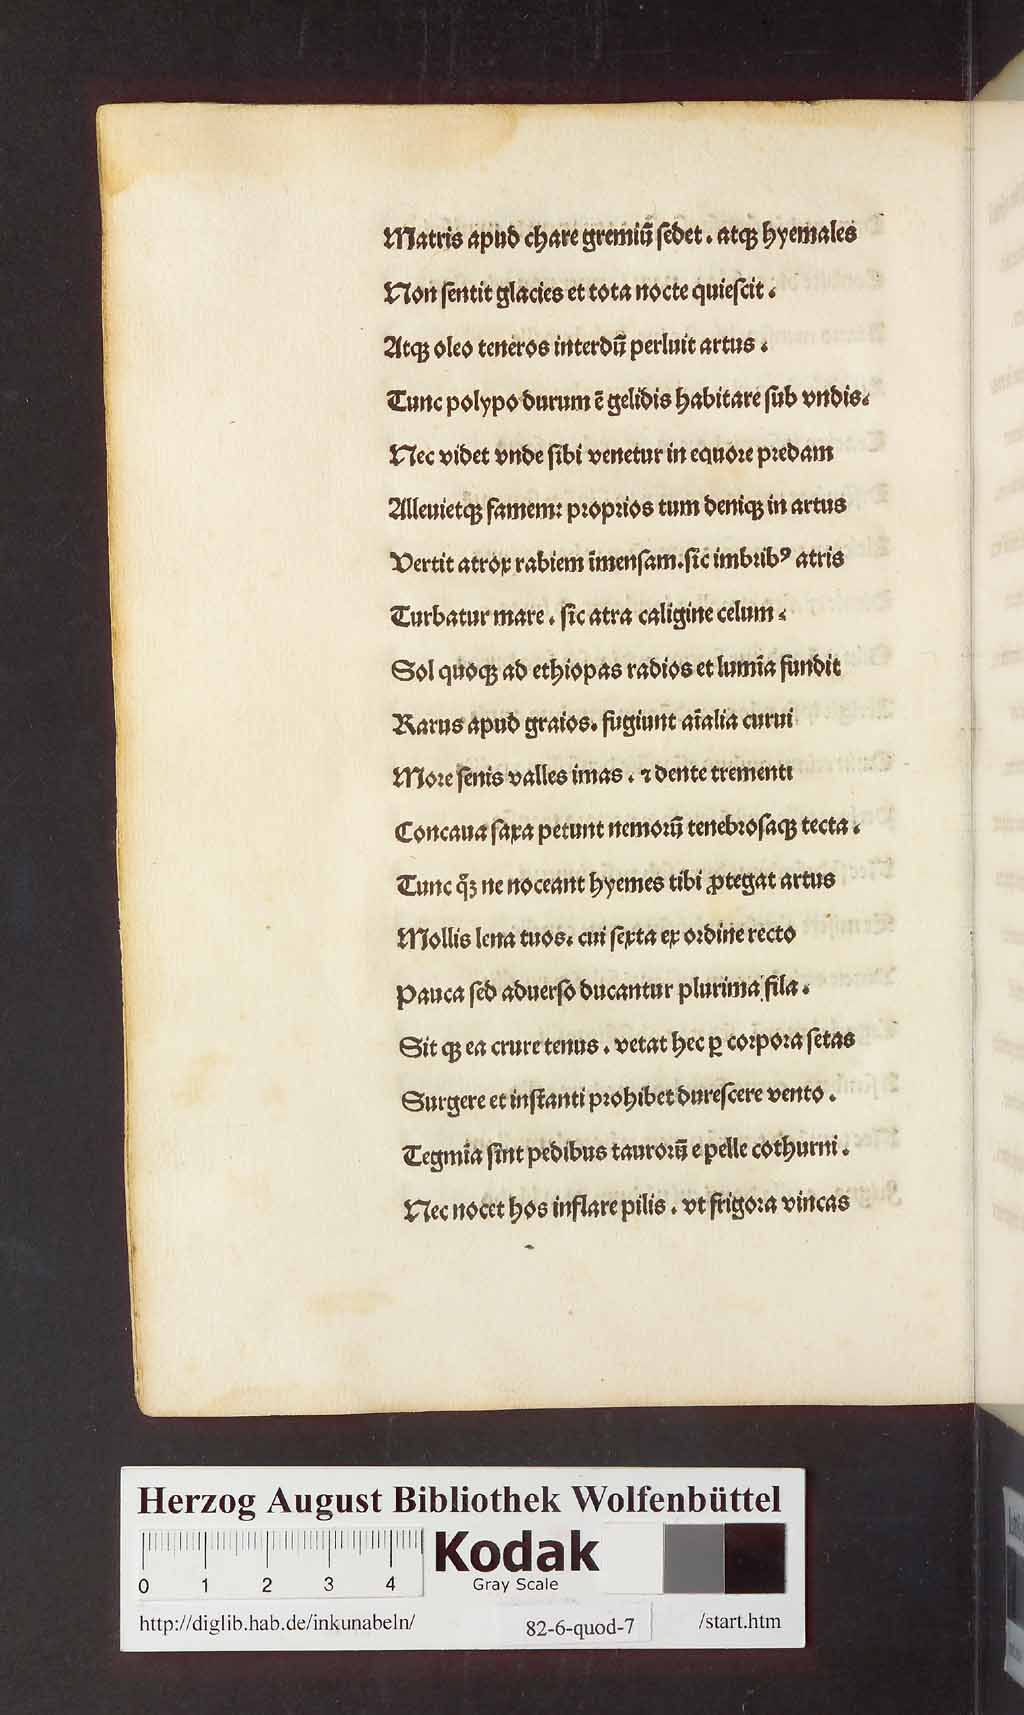 Matris apud chare gremiū sedet . atqꝫ hyemales
Non sentit glacies et tota nocte quiescit .
Atqꝫ oleo teneros interdū perluit artus .
Tunc polypo durum ē gelidis habitare sub vndis.
Nec videt vnde sibi venetur in equore predam
Alleuietqꝫ famem: proprios tum deniqꝫ in artus
Vertit atrox rabiem īmensam. sic imbribꝰ atris
Turbatur mare . sic atra caligine celum .
Sol quoqꝫ ad ethiopas radios et lumīa fundit
Rarus apud graios. fugiunt aīalia curui
More senis valles imas . ⁊ dente trementi
Concaua saxa petunt nemorū tenebrosaqꝫ tecta .
Tunc qꝫ ne noceant hyemes tibi ꝓtegat artus
Mollis lena tuos. cui sexta ex ordine recto
Pauca sed aduerso ducantur plurima fila .
Sit qꝫ ea crure tenus . vetat hec ꝑ corpora setas
Surgere et instanti prohibet durescere vento .
Tegmīa sint pedibus taurorū e pelle cothurni .
Nec nocet hos inflare pilis . vt frigora vincas
Herzog August Bibliothek Wolfenbüttel
Kodak
Gray Scale
0 1 2 3 4
http://diglib.hab.de/inkunabeln/ 82-6-quod-7 /start.htm